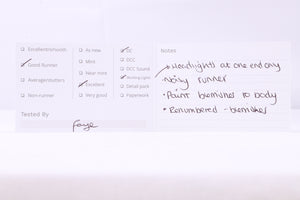 Excellent/smooth
Good Runner
Average/stutters
Non-runner
As new
Mint
Near mint
Excellent
Very good
DC
DCC
DCC Sound
Working Lights
Detail pack
Paperwork
Tested By
Faye
Notes
Headlights at one end only
Noisy runner
Paint blemishes to body
Renumbered - blemishes